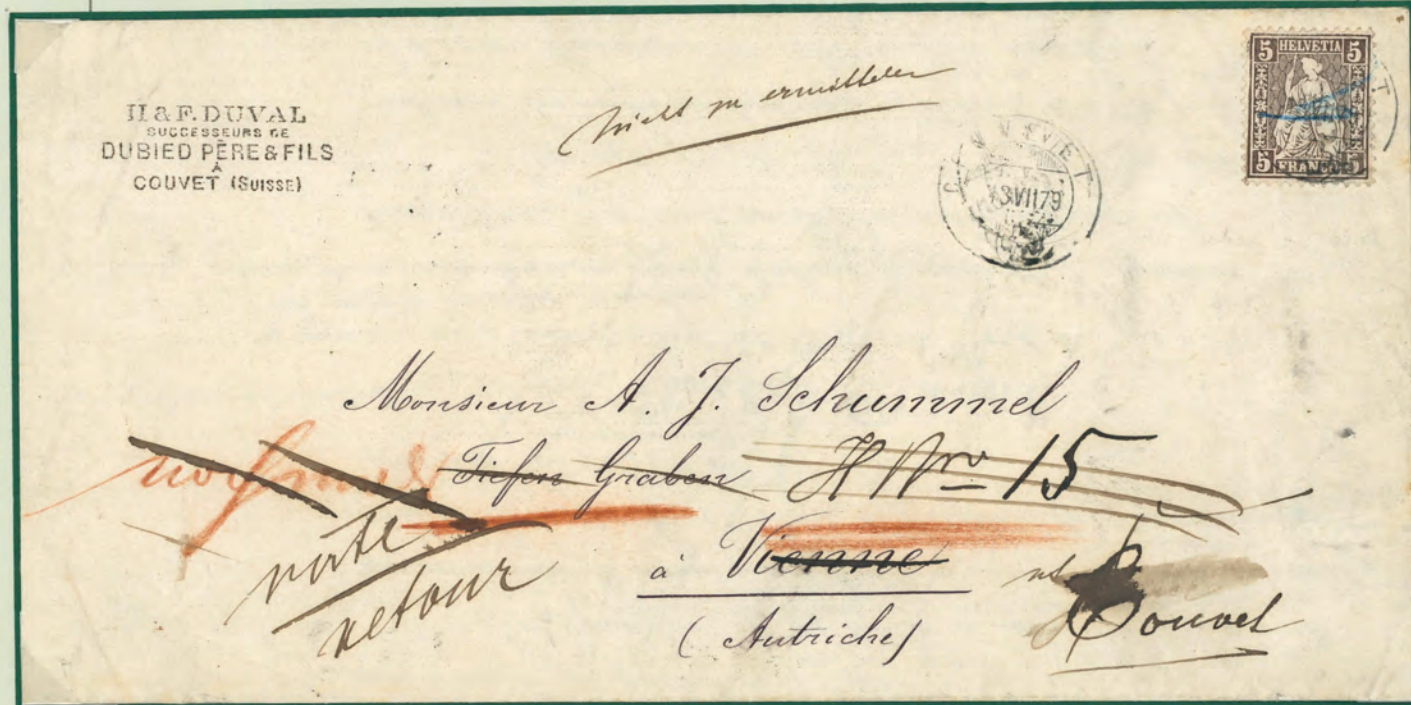 H & F. DUVAL
SUCCESSEURS DE
DUBIED PÈRE & FILS
À
COUVET (SUISSE)
nicht zu ermitteln
5 HELVETIA 5
5 FRANCO 5
COUVET
VII 79
Monsieur A. J. Schummel
Tiefen Graben H Nro 15
à Vienne
(Autriche)
retour
Couvet